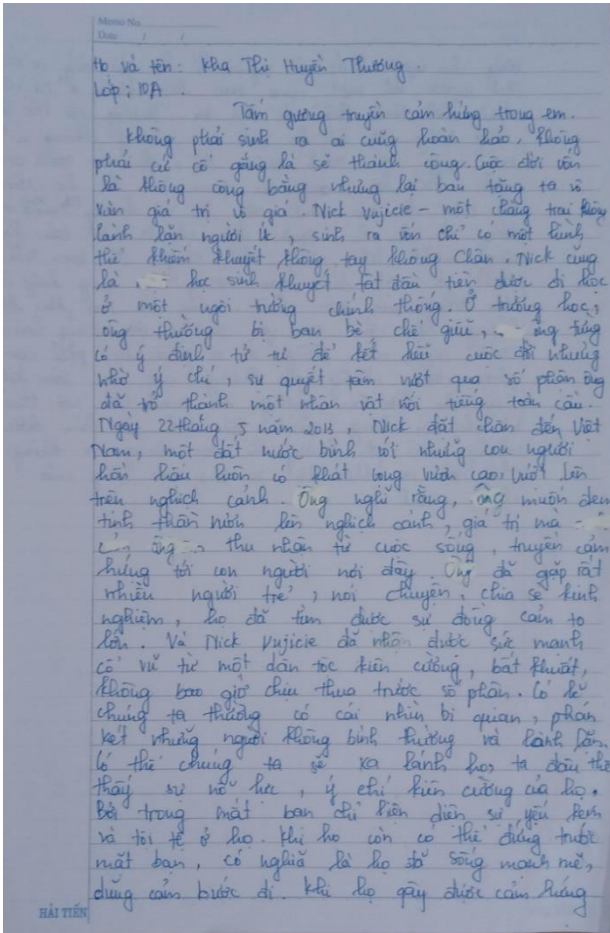 Memo No.
Date / /
Họ và tên: Kha Thị Huyền Thương.
Lớp: 10A.
Tấm gương truyền cảm hứng trong em.
Không phải sinh ra ai cũng hoàn hảo, không
phải cứ cố gắng là sẽ thành công. Cuộc đời vốn
là không công bằng nhưng lại ban tặng ta vô
vàn giá trị vô giá. Nick Vujicie - một chàng trai không
lành lặn người Úc, sinh ra vốn chỉ có một hình
thể khiếm khuyết không tay không chân. Nick cũng
là học sinh khuyết tật đầu tiên được đi học
ở một ngôi trường chính thống. Ở trường học,
ông thường bị bạn bè chê giễu, ông từng
có ý định tử tự để kết liễu cuộc đời nhưng
nhờ ý chí, sự quyết tâm vượt qua số phận ông
đã trở thành một nhân vật nổi tiếng toàn cầu.
Ngày 22 tháng 5 năm 2013, Nick đặt chân đến Việt
Nam, một đất nước bình với những con người
hồn hậu luôn có khát vọng vươn cao, vượt lên
trên nghịch cảnh. Ông nghĩ rằng, ông muốn đem
tinh thần vươn lên nghịch cảnh, giá trị mà
ông thu nhận từ cuộc sống, truyền cảm
hứng tới con người nơi đây. Ông đã gặp rất
nhiều người trẻ, nói chuyện, chia sẻ kinh
nghiệm, họ đã tìm được sự đồng cảm to
lớn. Và Nick Vujicie đã nhận được sức mạnh
cổ vũ từ một dân tộc kiên cường, bất khuất,
không bao giờ chịu thua trước số phận. Có lẽ
chúng ta thường có cái nhìn bi quan, phán
xét những người không bình thường và lành lặn.
Có thể chúng ta sẽ xa lánh họ, ta đâu thể
thấy sự nỗ lực, ý chí kiên cường của họ.
Bởi trong mắt bạn chỉ hiện diện sự yếu kém
và tồi tệ ở họ. Khi họ còn có thể đứng trước
mặt bạn, có nghĩa là họ đã sống mạnh mẽ,
dũng cảm bước đi. Khi họ gây được cảm hứng
HẢI TIẾN